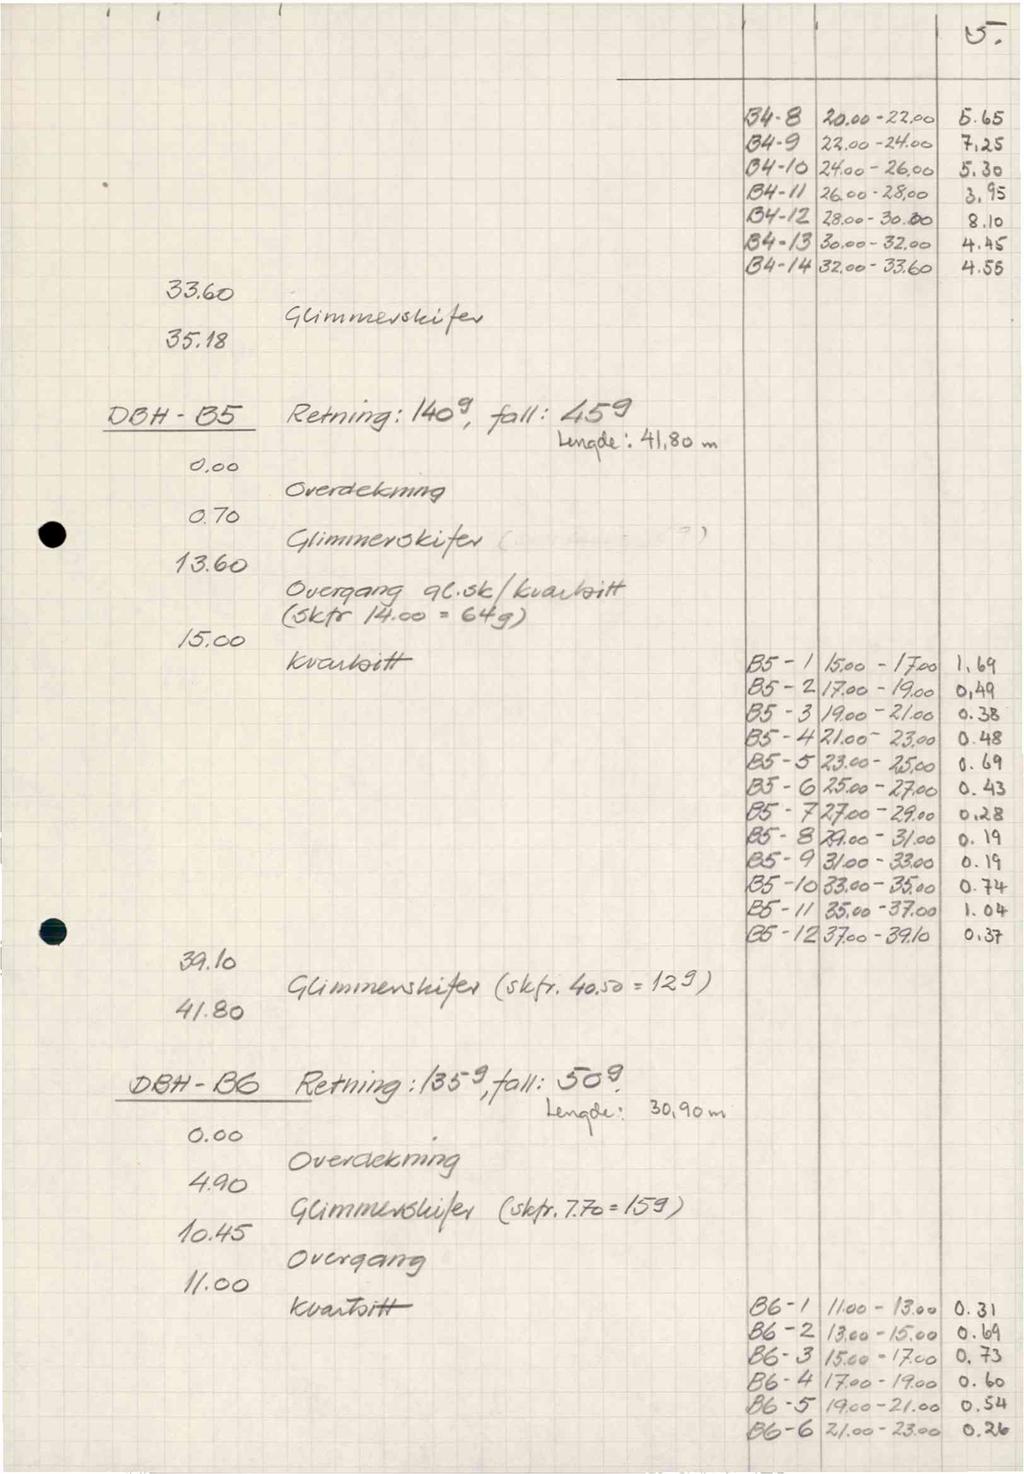 5.
B4-8 20.00-22.00 5.65
B4-9 22.00-24.00 7,25
B4-10 24.00-26.00 5.30
B4-11 26.00-28,00 3,95
B4-12 28.00-30.00 8.10
B4-13 30.00-32.00 4.45
B4-14 32.00-33.60 4.55
33.60
Glimmerskifer
35.18
DBH-B5 Retning: 140g, fall: 45g
Lengde: 41,80 m
0.00
Overdekning
0.70
Glimmerskifer
13.60
Overgang gl.sk/kvartsitt
(skfr 14.00 = 64g)
15.00
Kvartsitt B5-1 15.00-17.00 1,69
B5-2 17.00-19.00 0,49
B5-3 19.00-21.00 0.38
B5-4 21.00-23.00 0.48
B5-5 23.00-25.00 0.69
B5-6 25.00-27.00 0.43
B5-7 27.00-29.00 0,28
B5-8 29.00-31.00 0.19
B5-9 31.00-33.00 0.19
B5-10 33.00-35.00 0.74
B5-11 35.00-37.00 1.04
B5-12 37.00-39.10 0,37
39.10
Glimmerskifer (skfr. 40.50 = 12g)
41.80
DBH-B6 Retning: 135g, fall: 50g.
Lengde: 30,90 m
0.00
Overdekning
4.90
Glimmerskifer (skfr. 7.70 = 15g)
10.45
Overgang
11.00
Kvartsitt B6-1 11.00-13.00 0.31
B6-2 13.00-15.00 0.69
B6-3 15.00-17.00 0.73
B6-4 17.00-19.00 0.60
B6-5 19.00-21.00 0.54
B6-6 21.00-23.00 0.26